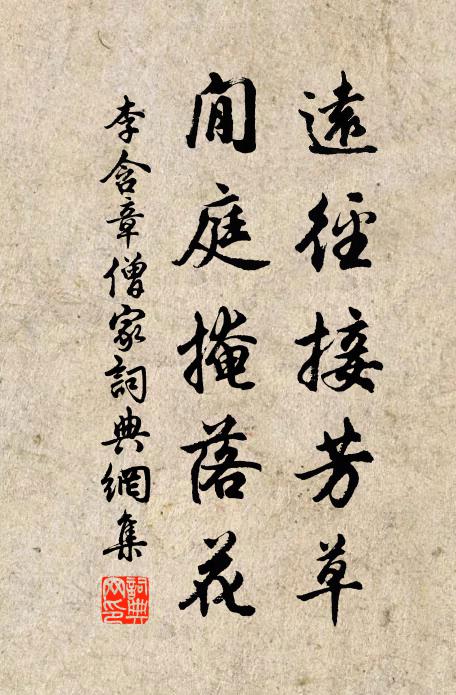 遠徑接芳草
閒庭掩落花
李含章僧家詞典網集
詞典網印